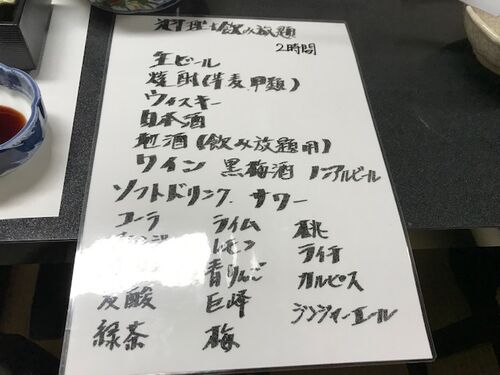 料理も飲み放題
2時間
生ビール
焼酎(蕎麦,甲類)
ウィスキー
日本酒
地酒(飲み放題用)
ワイン 黒梅酒 ノンアルビール
ソフトドリンク. サワー
コーラ ライム 桃
レモン ライチ
青りんご カルピス
炭酸 巨峰 ジンジャーエール
緑茶 梅